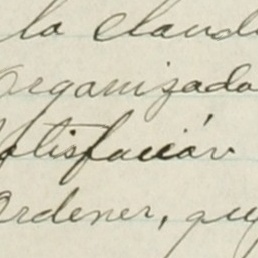 la claud
organizada
satisfacción
ordener, que